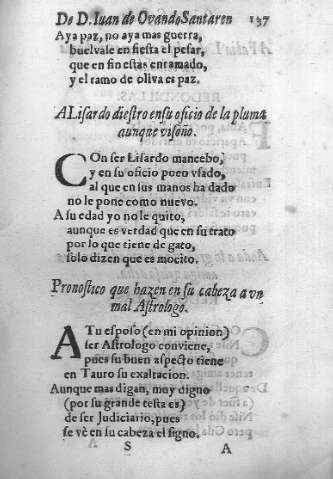 De D. Iuan de Ovando Santaren 137
Aya paz, no aya mas guerra,
buelvale en fiesta el pesar,
que en fin estas enramado,
y el ramo de oliva es paz.
A Lisardo diestro en su oficio de la pluma
aunque visoño.
COn ser Lisardo mancebo,
y en su oficio poco vsado,
al que en sus manos ha dado
no le pone como nuevo.
A su edad yo no le quito,
aunque es verdad que en su trato
por lo que tiene de gato,
solo dizen que es mocito.
Pronostico que hazen en su cabeza a vn
mal Astrologo.
A Tu esposo (en mi opinion)
ser Astrologo conviene,
pues su buen aspecto tiene
en Tauro su exaltacion.
Aunque mas digan, muy digno
(por su grande testa es)
de ser Judiciario, pues
se vè en su cabeza el signo.
S A